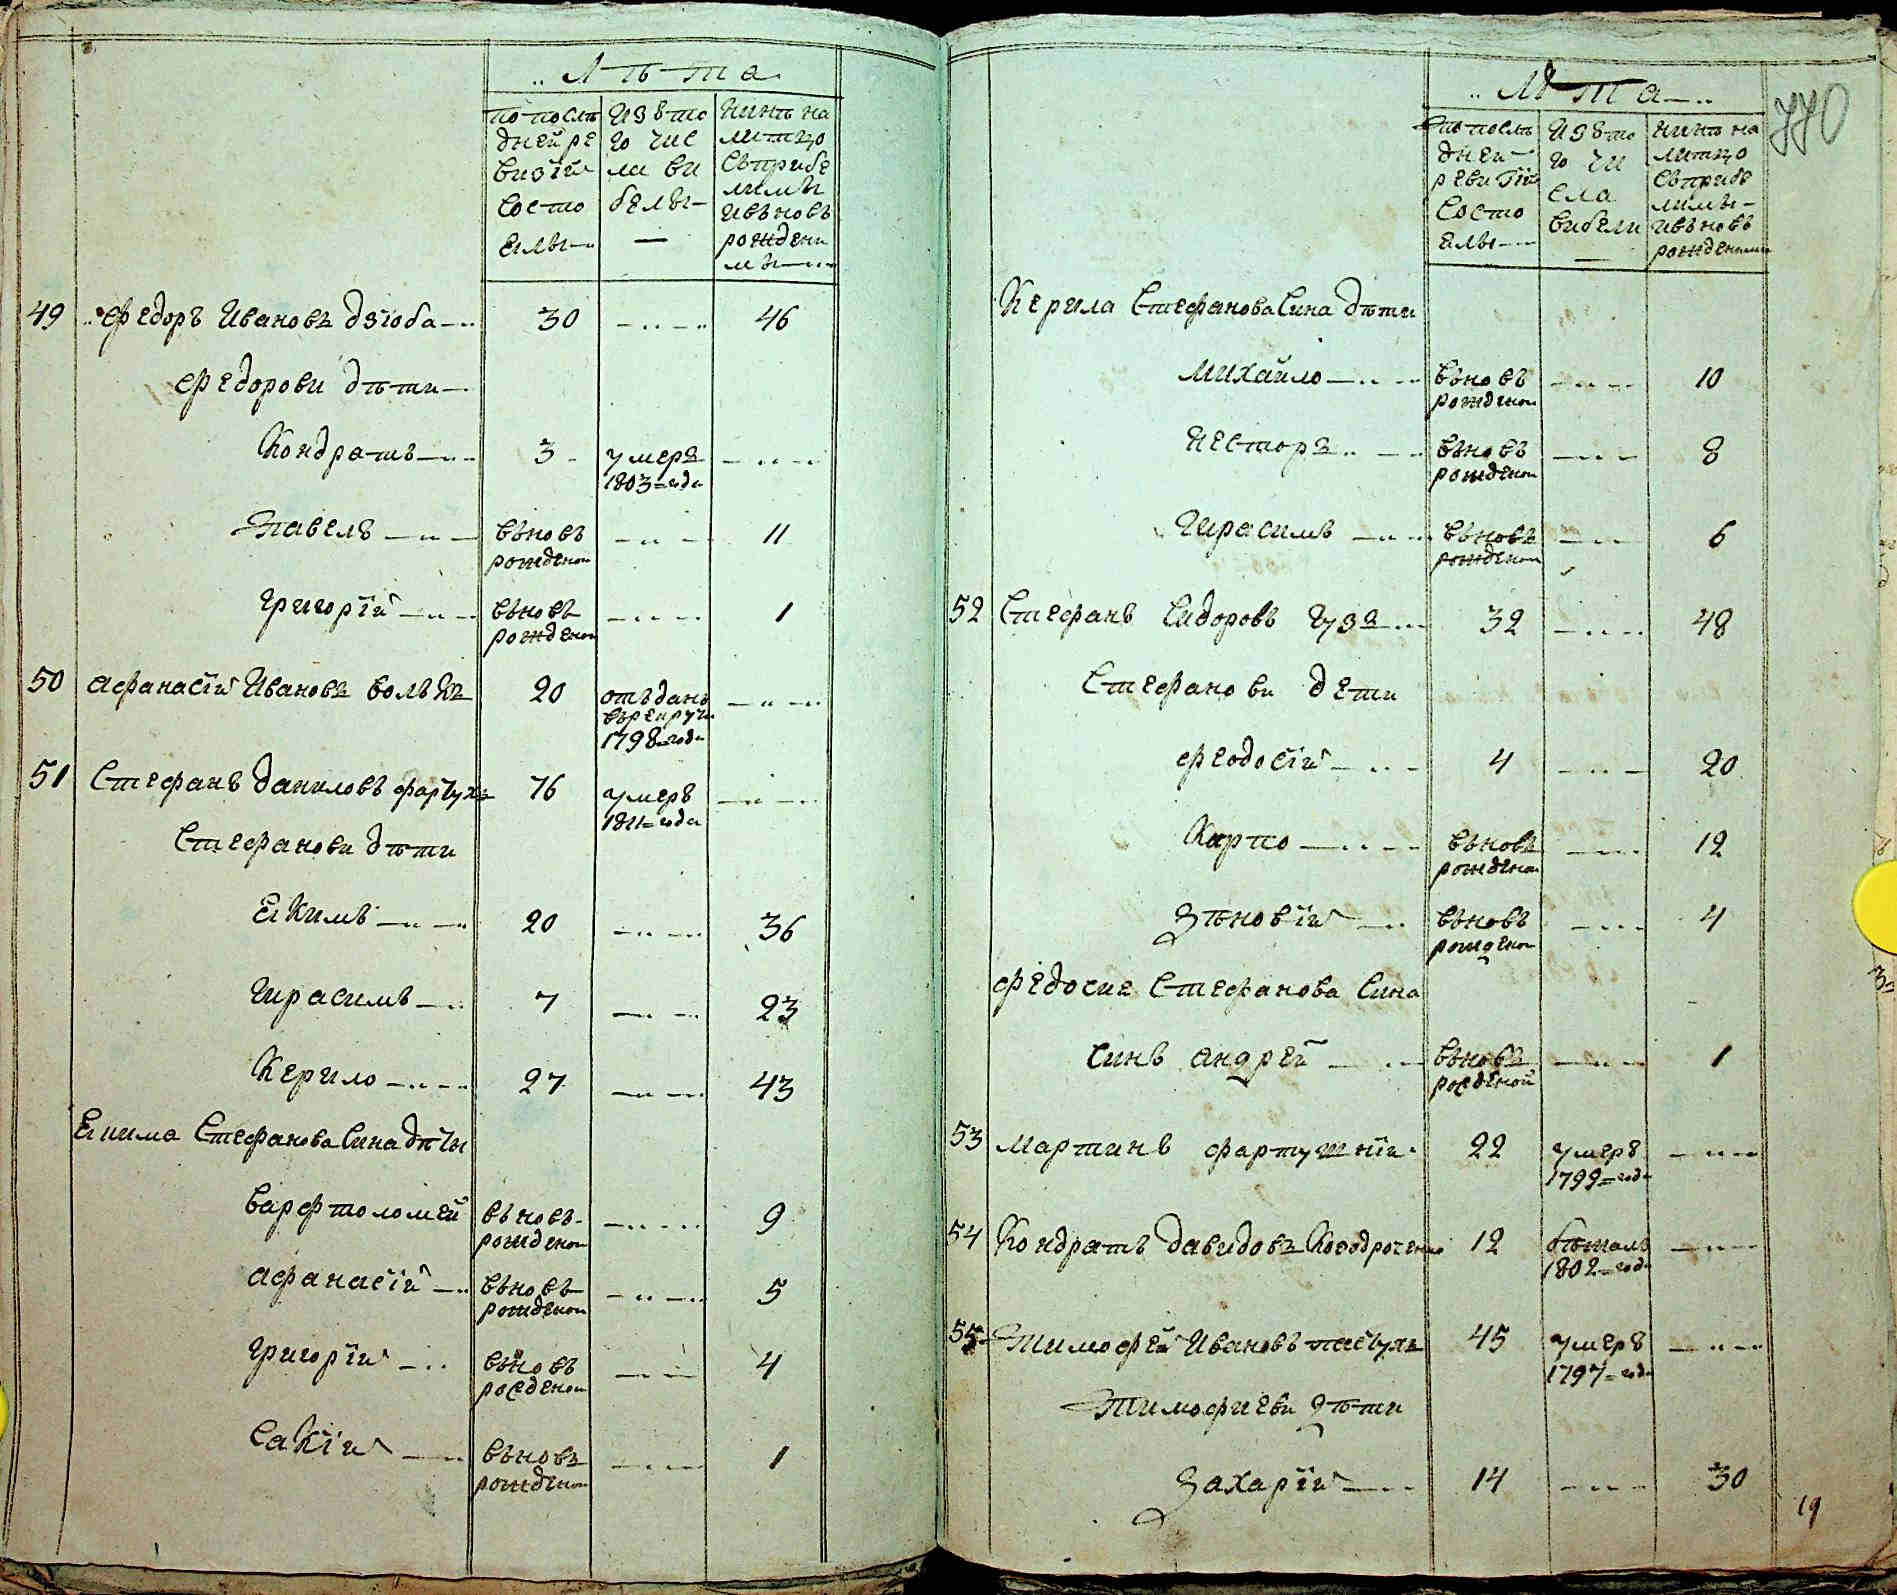 Лѣта
по послѣ
дней ре
визіи
состо
ялы
изъ то
го чис
ла ви
белы
нинѣ на
лицо
съ прибе
лимы
и вновь
рождени
мы
49 Федоръ Ивановъ Дзюба 30 46
Федорови дѣти
Кондратъ 3 умеръ 1803 года
Павелъ вьновь рожденои 11
Григорій вьновь рожденои 1
50 Афанасій Ивановъ Волъкъ 20 отъданъ въ рекруты 1798 года
51 Стефанъ Даниловъ Фартухъ 76 умеръ 1811 года
Стефанови дѣти
Екимъ 20 36
Герасимъ 7 23
Керило 27 43
Екима Стефанова сина дѣти
Варфтоломей вьновь рожденои 9
Афанасій вьновь рожденои 5
Григорій вьновь рожденои 4
Сакій вьновь рожденои 1
770
Лѣта
по послѣ
дней
ревизіи
состо
ялы
изъ то
го чи
сла
вибели
нинѣ на
лицо
съ прибе
лимы
и вьновь
рожденими
Керила Стефанова сина дѣти
Михайло вьновь рожденои 10
Несторъ вьновь рожденои 8
Герасимъ вьновь рожденои 6
52 Стефанъ Сидоровъ Гузъ 32 48
Стефанови дети
Феодосій 4 20
Карпо вьновь рожденои 12
Зѣновій вьновь рожденои 4
Федосие Стефанова сина
синъ Андрей вьновь рожденой 1
53 Мартинъ Фартушній 22 умеръ 1799 года
54 Кондратъ Давидовъ 12 бѣжалъ 1802 года
55 Тимофей Ивановъ Пастухъ 45 умеръ 1797 года
Тимофиеви дѣти
Захарій 14 30
19